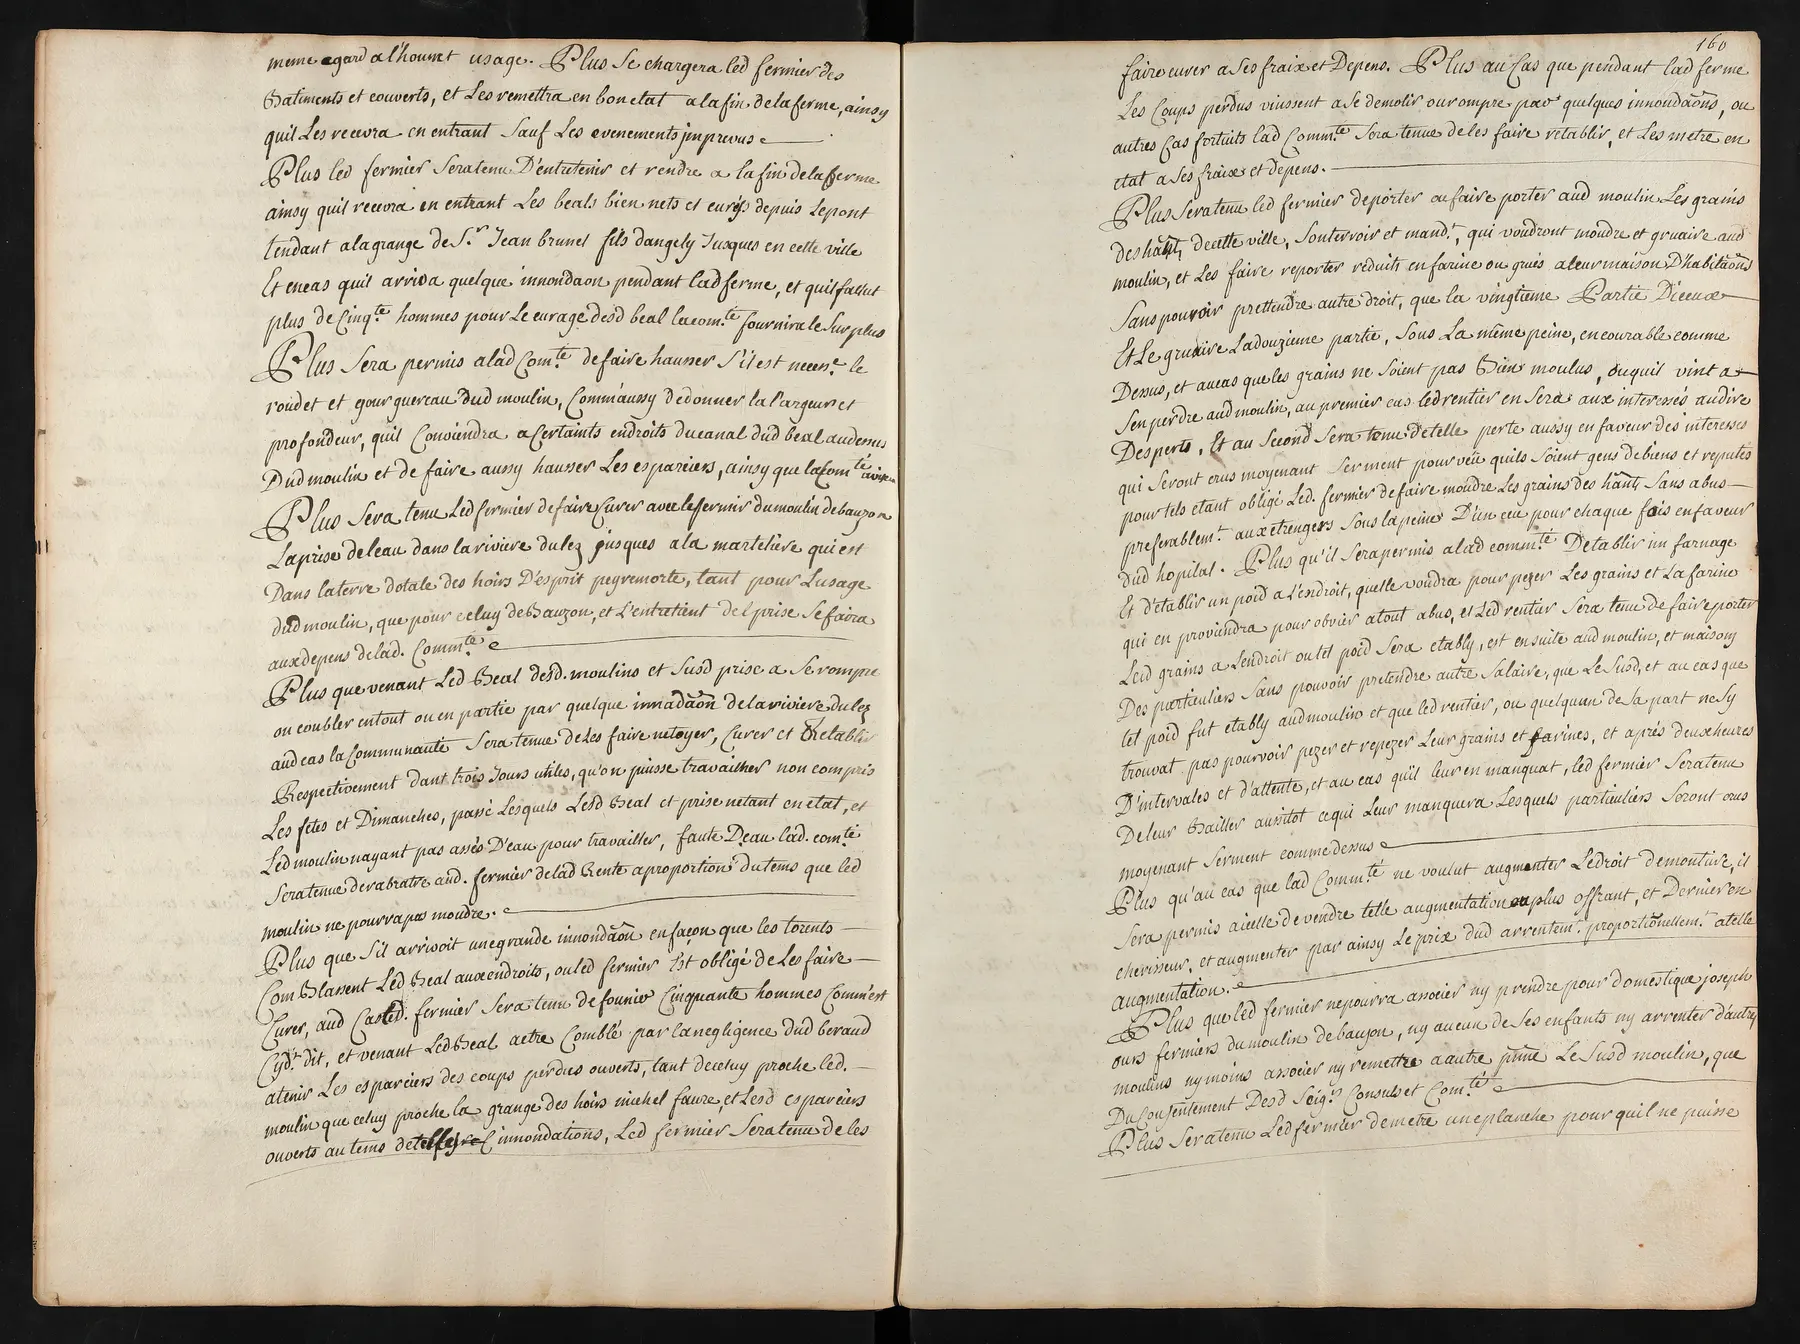 meme egard a l'hounet usage. Plus se chargera led fermier des
Batiments et couverts, et les remettra en bon etat a la fin de la ferme, ainsy
quil Les recevra en entrant sauf Les evenements jnprevus
Plus led fermier sera tenu D'entretenir et rendre a la fin de la ferme
ainsy quil recevra en entrant Les beals bien nets et curés depuis Le pont
tendant a la grange de Sr. Jean brunel fils dangely Jusques en cette ville
Et en cas quil arriva quelque innondaon pendant lad ferme, et quil falut
plus de Cinqte hommes pour Le curage desd beal la comte. fournira le surplus
Plus sera permis a lad Comte. de faire hausser s'il est necere. le
roudet et gourguereau dud moulin, Comm'aussy de donner la largeur et
profondeur, quil Conviendra a Certaints endroits du canal dud beal audessus
Dud moulin et de faire aussy hausser Les espaciers, ainsy que la Comté avisera
Plus sera tenu Led fermier de faire Curer avec le fermier du moulin de bauzon
La prise de leau dans la riviere du lez jusques a la marteliere qui est
Dans la terre dotale des hoirs D'esprit peyremorte, tant pour L'usage
dud moulin, que pour celuy de Bauzon, et L'entretient de lprise se faira
aux depens de lad. Commte.
Plus que venant Led Beal desd. moulins et susd prise a se rompre
ou coubler entout ou en partie par quelque innadãon de la riviere du lez
aud cas la Communauté sera tenue de Les faire netoyer, Curer et Retablir
Respectivement dant trois Jours utiles, qu'on puisse travailher non compris
Les fetes et Dimanches, passé Lesquels Lesd Beal et prise netant en etat, et
Led moulin nayant pas assés D'eau pour travailler, faute D'eau lad. comté
sera tenue de rabratre aud. fermier de lad Rente a proportion du tems que led
moulin ne pourra pas moudre.
Plus que s'il arrivoit une grande innondãon en façon que les torents
Com Blassent Led Beal aux endroits, ou led fermier Est obligé de Les faire
Curer, aud Cas led. fermier sera tenu de founir Cinquante hommes Comm'est
Cydt. dit, et venant Led Beal a etre Comblé par la negligence dud beraud
a tenir Les esparciers des coups perdus ouverts, tant de celuy proche led.
moulin que celuy proche la grange des hoirs michel faure, et Lesd esparciers
ouverts au tems de innondations, Led fermier sera tenu de les
160
faire curer a ses fraix et Depens. Plus au Cas que pendant lad ferme
Les Coups perdus vinssent a se demolir ou rompre par quelques innondãons, ou
autres Cas fortuits lad Commte. sera tenue de les faire rétablir, et Les metre en
etat a ses fraix et depens.
Plus sera tenu led fermier de porter ou faire porter aud moulin Les grains
des hãnt, de cette ville, son terroir et mandt., qui voudront moudre et gruaire aud
moulin, et Les faire reporter reduits en farine ou grués a leur maison D'habitãons
sans pouvoir prettendre autre droit, que la vingtieme Partie D'iceux
Et Le gruaire La douzieme partie, sous La même peine, encourable comme
Dessus, et au cas que les grains ne soient pas Bien moulus, ou quil vint a
s'en perdre aud moulin, au premier cas led rentier en sera aux interessés au dire
D'esperts, Et au second sera tenu de telle perte aussy en faveur des interessés
qui seront crus moyenant serment pourveü quils soient gens de biens et reputés
pour tels etant obligé Led. fermier de faire moudre Les grains des hãnts sans abus
preferablemt. aux etrengers sous la peine D'un ecu pour chaque fois en faveur
dud hopital. Plus qu'il sera permis a lad commté D'etablir un farnage
Et d'établir un poid a L'endroit, quelle voudra pour pezer Les grains et La farine
qui en proviendra pour obvier a tout abus, et Led rentier sera tenu de faire porter
Lesd grains a Lendroit ou tel poid sera etably, est ensuite aud moulin, et maisons
Des particuliers sans pouvoir pretendre autre salaire, que Le susd, et au cas que
tel poid fut etably aud moulin et que led rentier, ou quelquun de sa part ne sy
trouvat pas pourvoir pezer et repezer Leur grains et farines, et aprés deux heures
D'intervales et d'attente, et au cas qu'il leur en manquat, led fermier sera tenu
De leur Bailler aussitot ce qui Leur manquera Lesquels particuliers seront crus
moyenant serment comme dessus
Plus qu'au cas que lad Commté ne voulut augmenter Le droit de mouture, il
sera permis a icelle de vendre telle augmentation au plus offrant, et Dernier en
cherisseur, et augmenter par ainsy Le prix dud arrentemt. proportionellemt. a telle
augmentation.
Plus que led fermier ne pourra associer ny prendre pour domestique joseph
ours fermiers du moulin de bauzon, ny aucun de ses enfants ny arrenter d'autres
moulins ny moins associer ny remettre a autre pñne Le susd moulin, que
Du Consentement Desd Seigrs. Consuls et Comté
Plus sera tenu Led fermier de metre une planche pour quil ne puisse